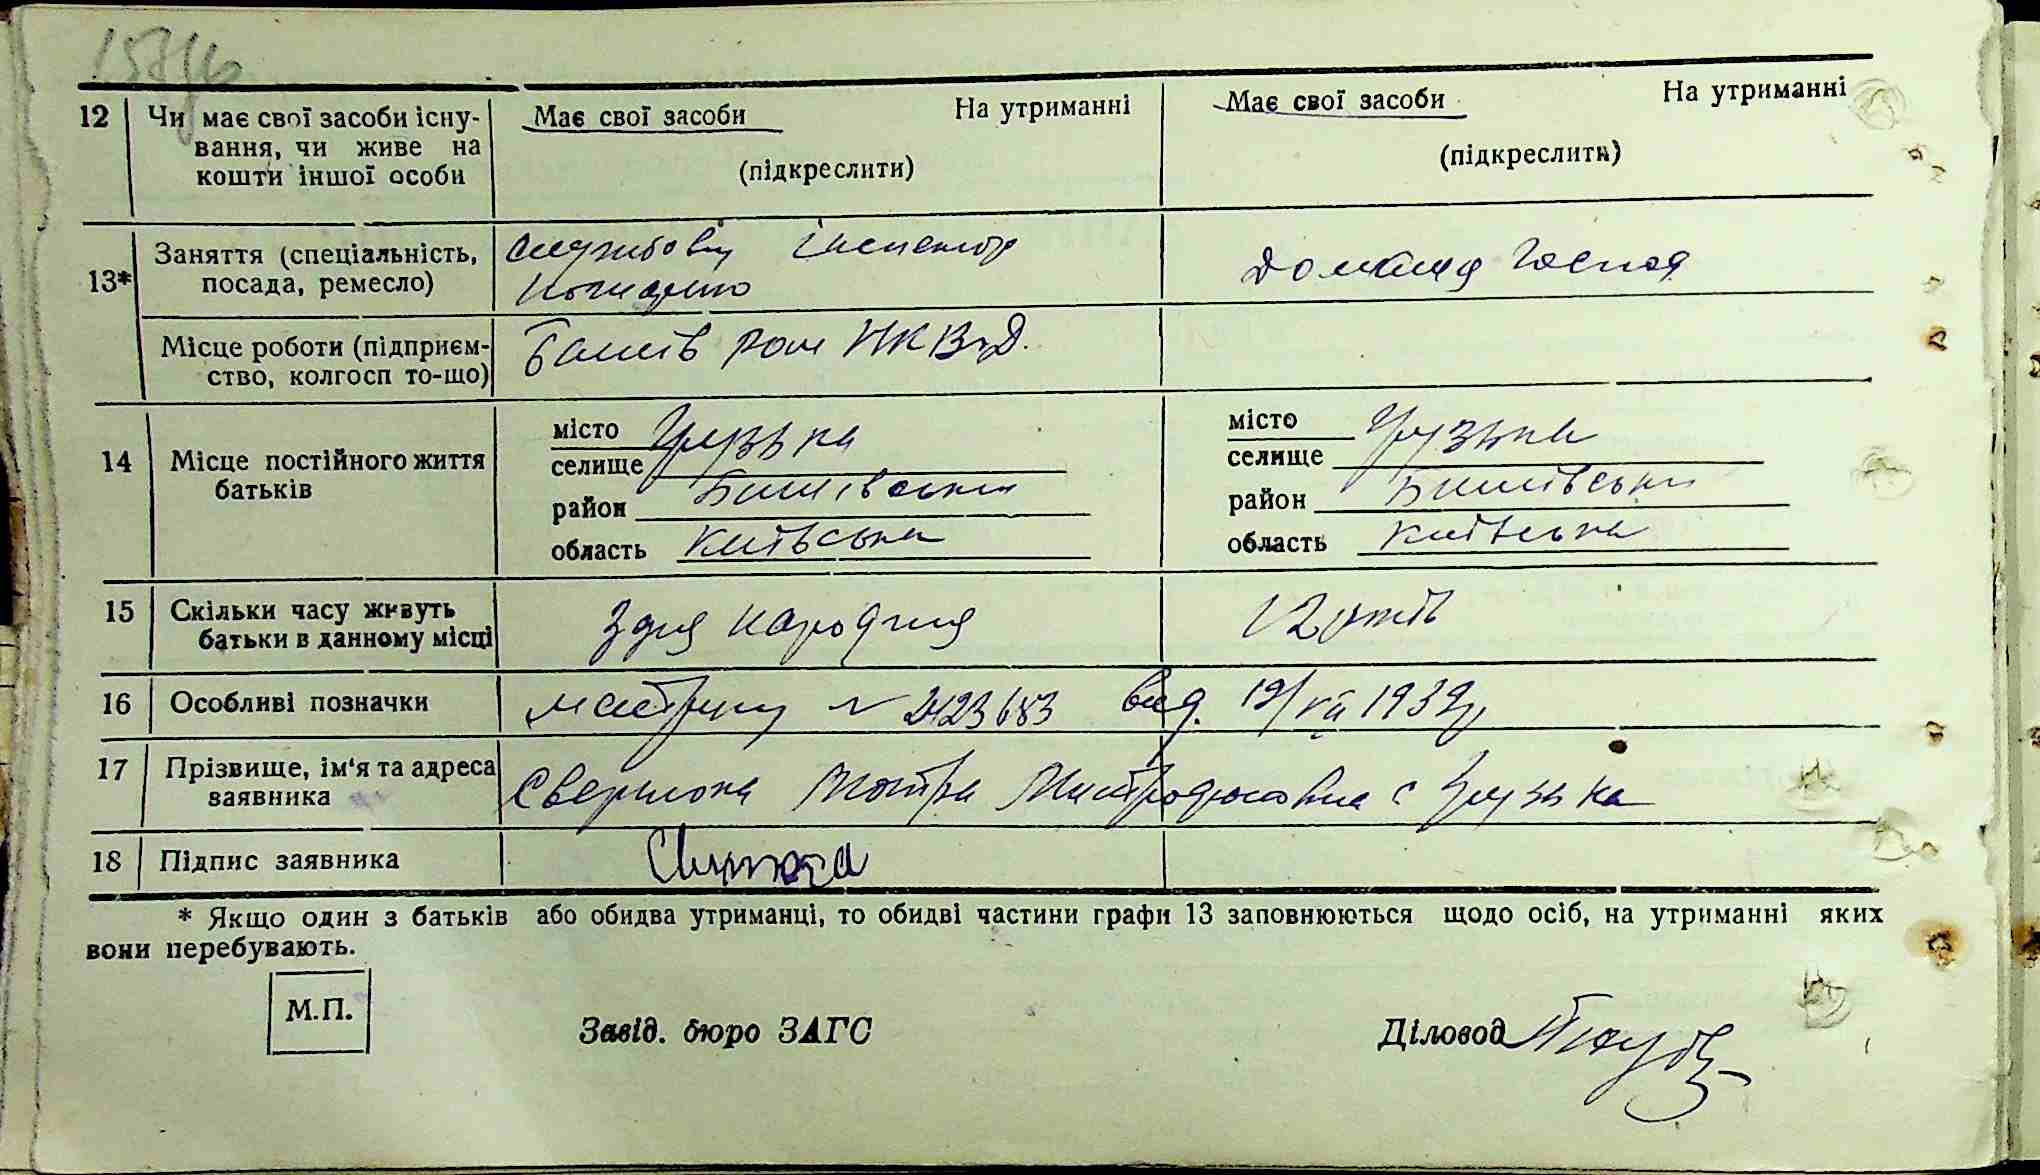 12 Чи має свої засоби існу- Має свої засоби На утриманні Має свої засоби На утриманні
вання, чи живе на
кошти іншої особи (підкреслити) (підкреслити)
13* Заняття (спеціальність, службовець інспектор Домашня господ.
посада, ремесло)
Місце роботи (підприєм- НКВД.
ство, колгосп то-що)
14 Місце постійного життя місто Грузька місто Грузька
батьків селище селище
район Бишівський район Бишівський
область Київська область Київська
15 Скільки часу живуть З дня народження 12 років
батьки в данному місці
16 Особливі позначки метрику № 2423653 вид. 19/VII 1939р.
17 Прізвище, ім'я та адреса Мотря Митрофановна с Грузька
заявника
18 Підпис заявника
* Якщо один з батьків або обидва утриманці, то обидві частини графи 13 заповнюються щодо осіб, на утриманні яких
вони перебувають.
М.П.
Завід. бюро ЗАГС Діловод